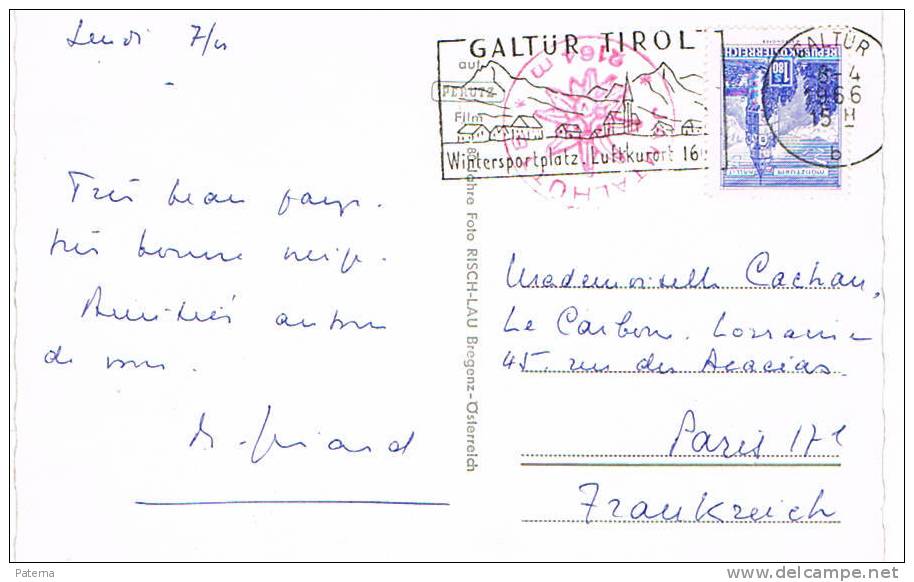 Lundi 7/
GALTÜR TIROL
auf
PERUTZ
Film
Wintersportplatz. Luftkurort 16
2164 m
GALTÜR
8-4
1966
15 H
b
REPUBLIK ÖSTERREICH
1.80
MÜNZTURM
80 Jahre Foto RISCH-LAU Bregenz-Österreich
Très beau pays.
très bonne neige.
Amitiés autour
de vous.
Mademoiselle Cachan,
Le Carbone. Lorraine
45, rue des Acacias.
Paris 17e
Frankreich
Paterna
www.delcampe.net